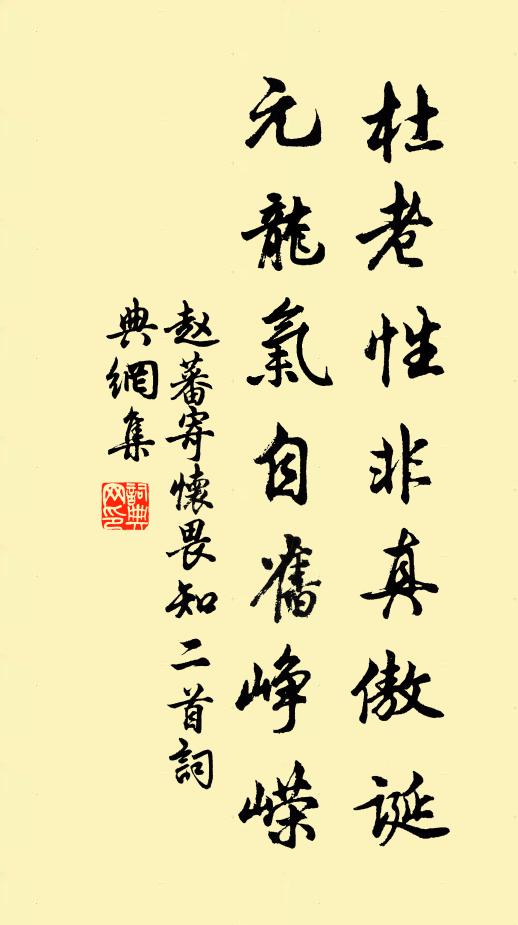 杜老性非真傲誕
元龍氣自舊峥嶸
赵蕃寄懷畏知二首詞
典網集
詞典
网印